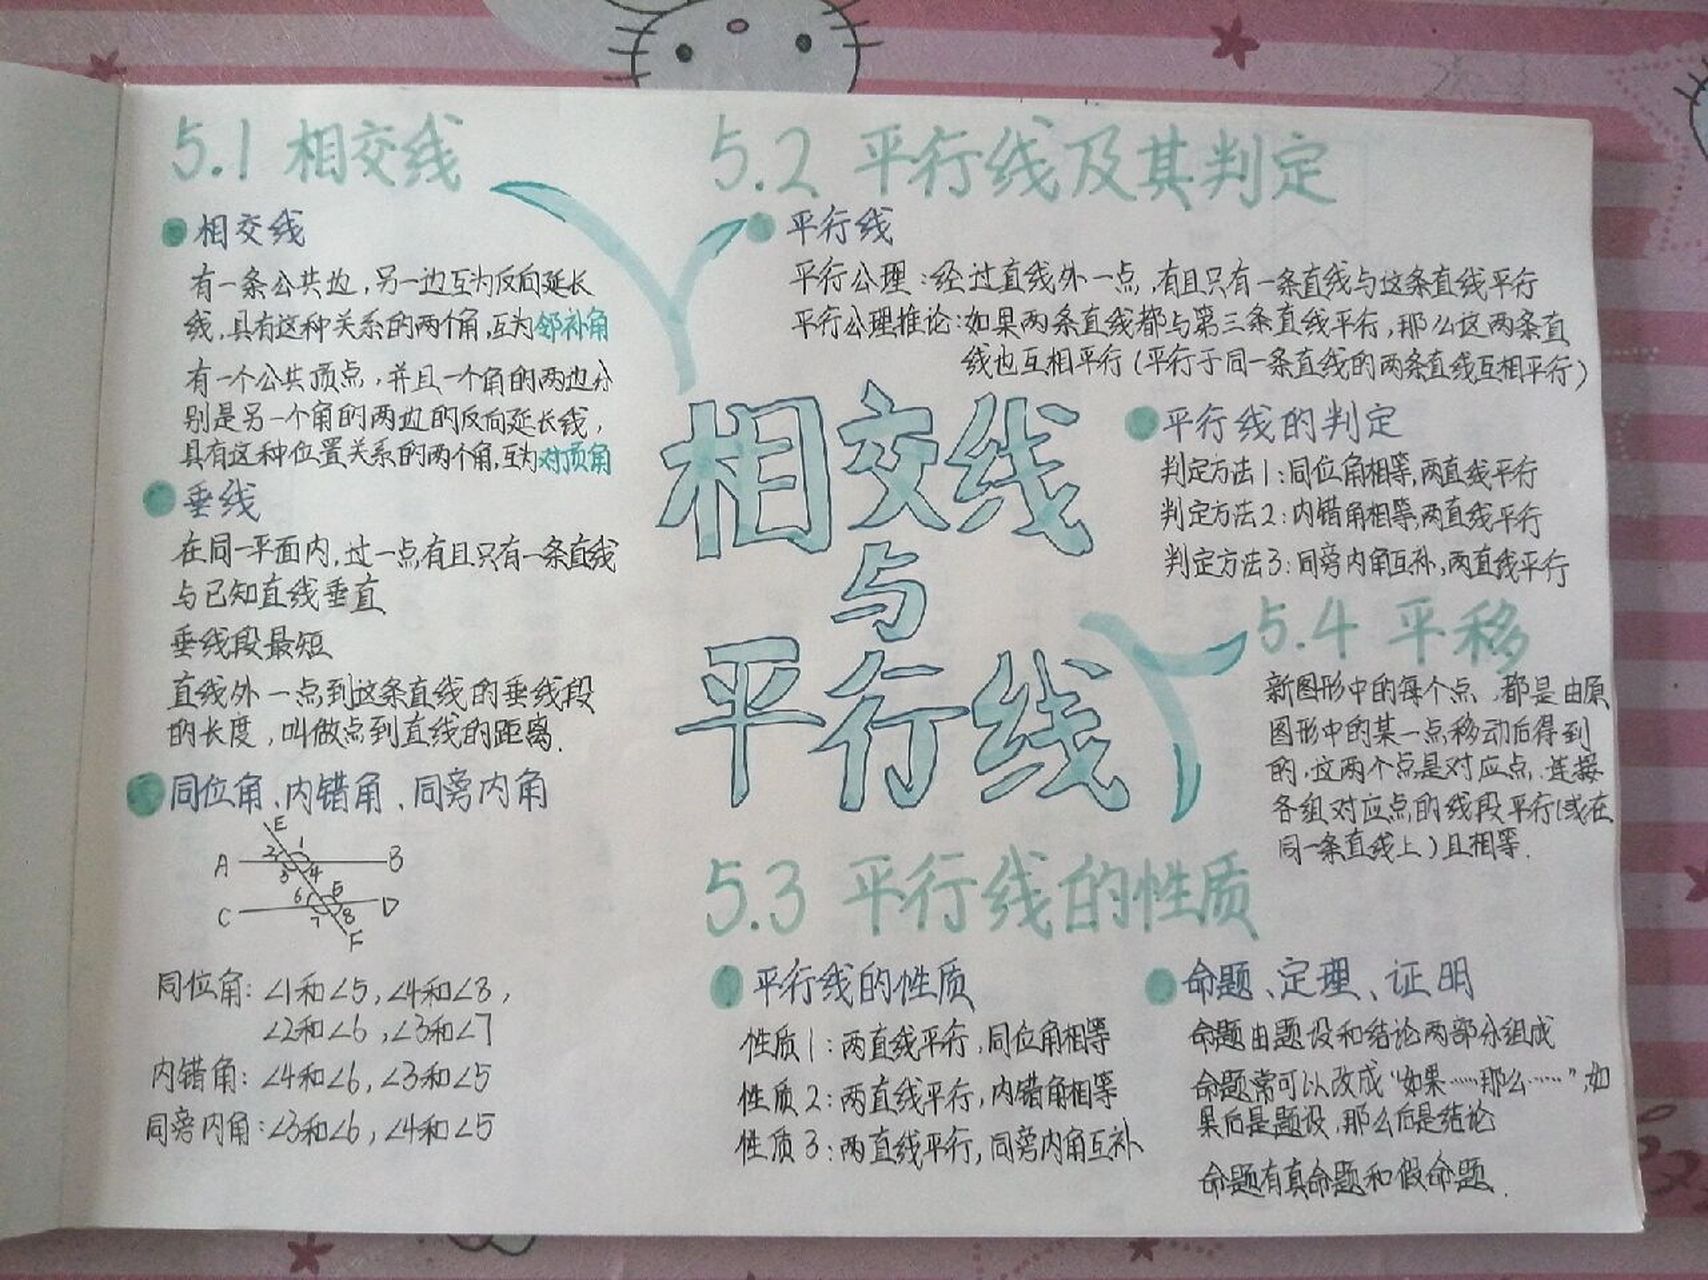 5.1 相交线
相交线
有一条公共边,另一边互为反向延长
线,具有这种关系的两个角,互为邻补角
有一个公共顶点,并且一个角的两边分
别是另一个角的两边的反向延长线,
具有这种位置关系的两个角,互为对顶角
垂线
在同一平面内,过一点有且只有一条直线
与已知直线垂直
垂线段最短
直线外一点到这条直线的垂线段
的长度,叫做点到直线的距离.
同位角、内错角、同旁内角
E
A 2 1 B
3 4
6 5
C 7 8 D
F
同位角:∠1和∠5,∠4和∠8,
∠2和∠6,∠3和∠7
内错角:∠4和∠6,∠3和∠5
同旁内角:∠3和∠6,∠4和∠5
相交线
与
平行线
5.2 平行线及其判定
平行线
平行公理:经过直线外一点,有且只有一条直线与这条直线平行
平行公理推论:如果两条直线都与第三条直线平行,那么这两条直
线也互相平行(平行于同一条直线的两条直线互相平行)
平行线的判定
判定方法1:同位角相等,两直线平行
判定方法2:内错角相等,两直线平行
判定方法3:同旁内角互补,两直线平行
5.3 平行线的性质
平行线的性质
性质1:两直线平行,同位角相等
性质2:两直线平行,内错角相等
性质3:两直线平行,同旁内角互补
命题、定理、证明
命题由题设和结论两部分组成
命题常可以改成“如果……那么……”,如
果后是题设,那么后是结论
命题有真命题和假命题.
5.4 平移
新图形中的每个点,都是由原
图形中的某一点移动后得到
的,这两个点是对应点,连接
各组对应点的线段平行(或在
同一条直线上)且相等.